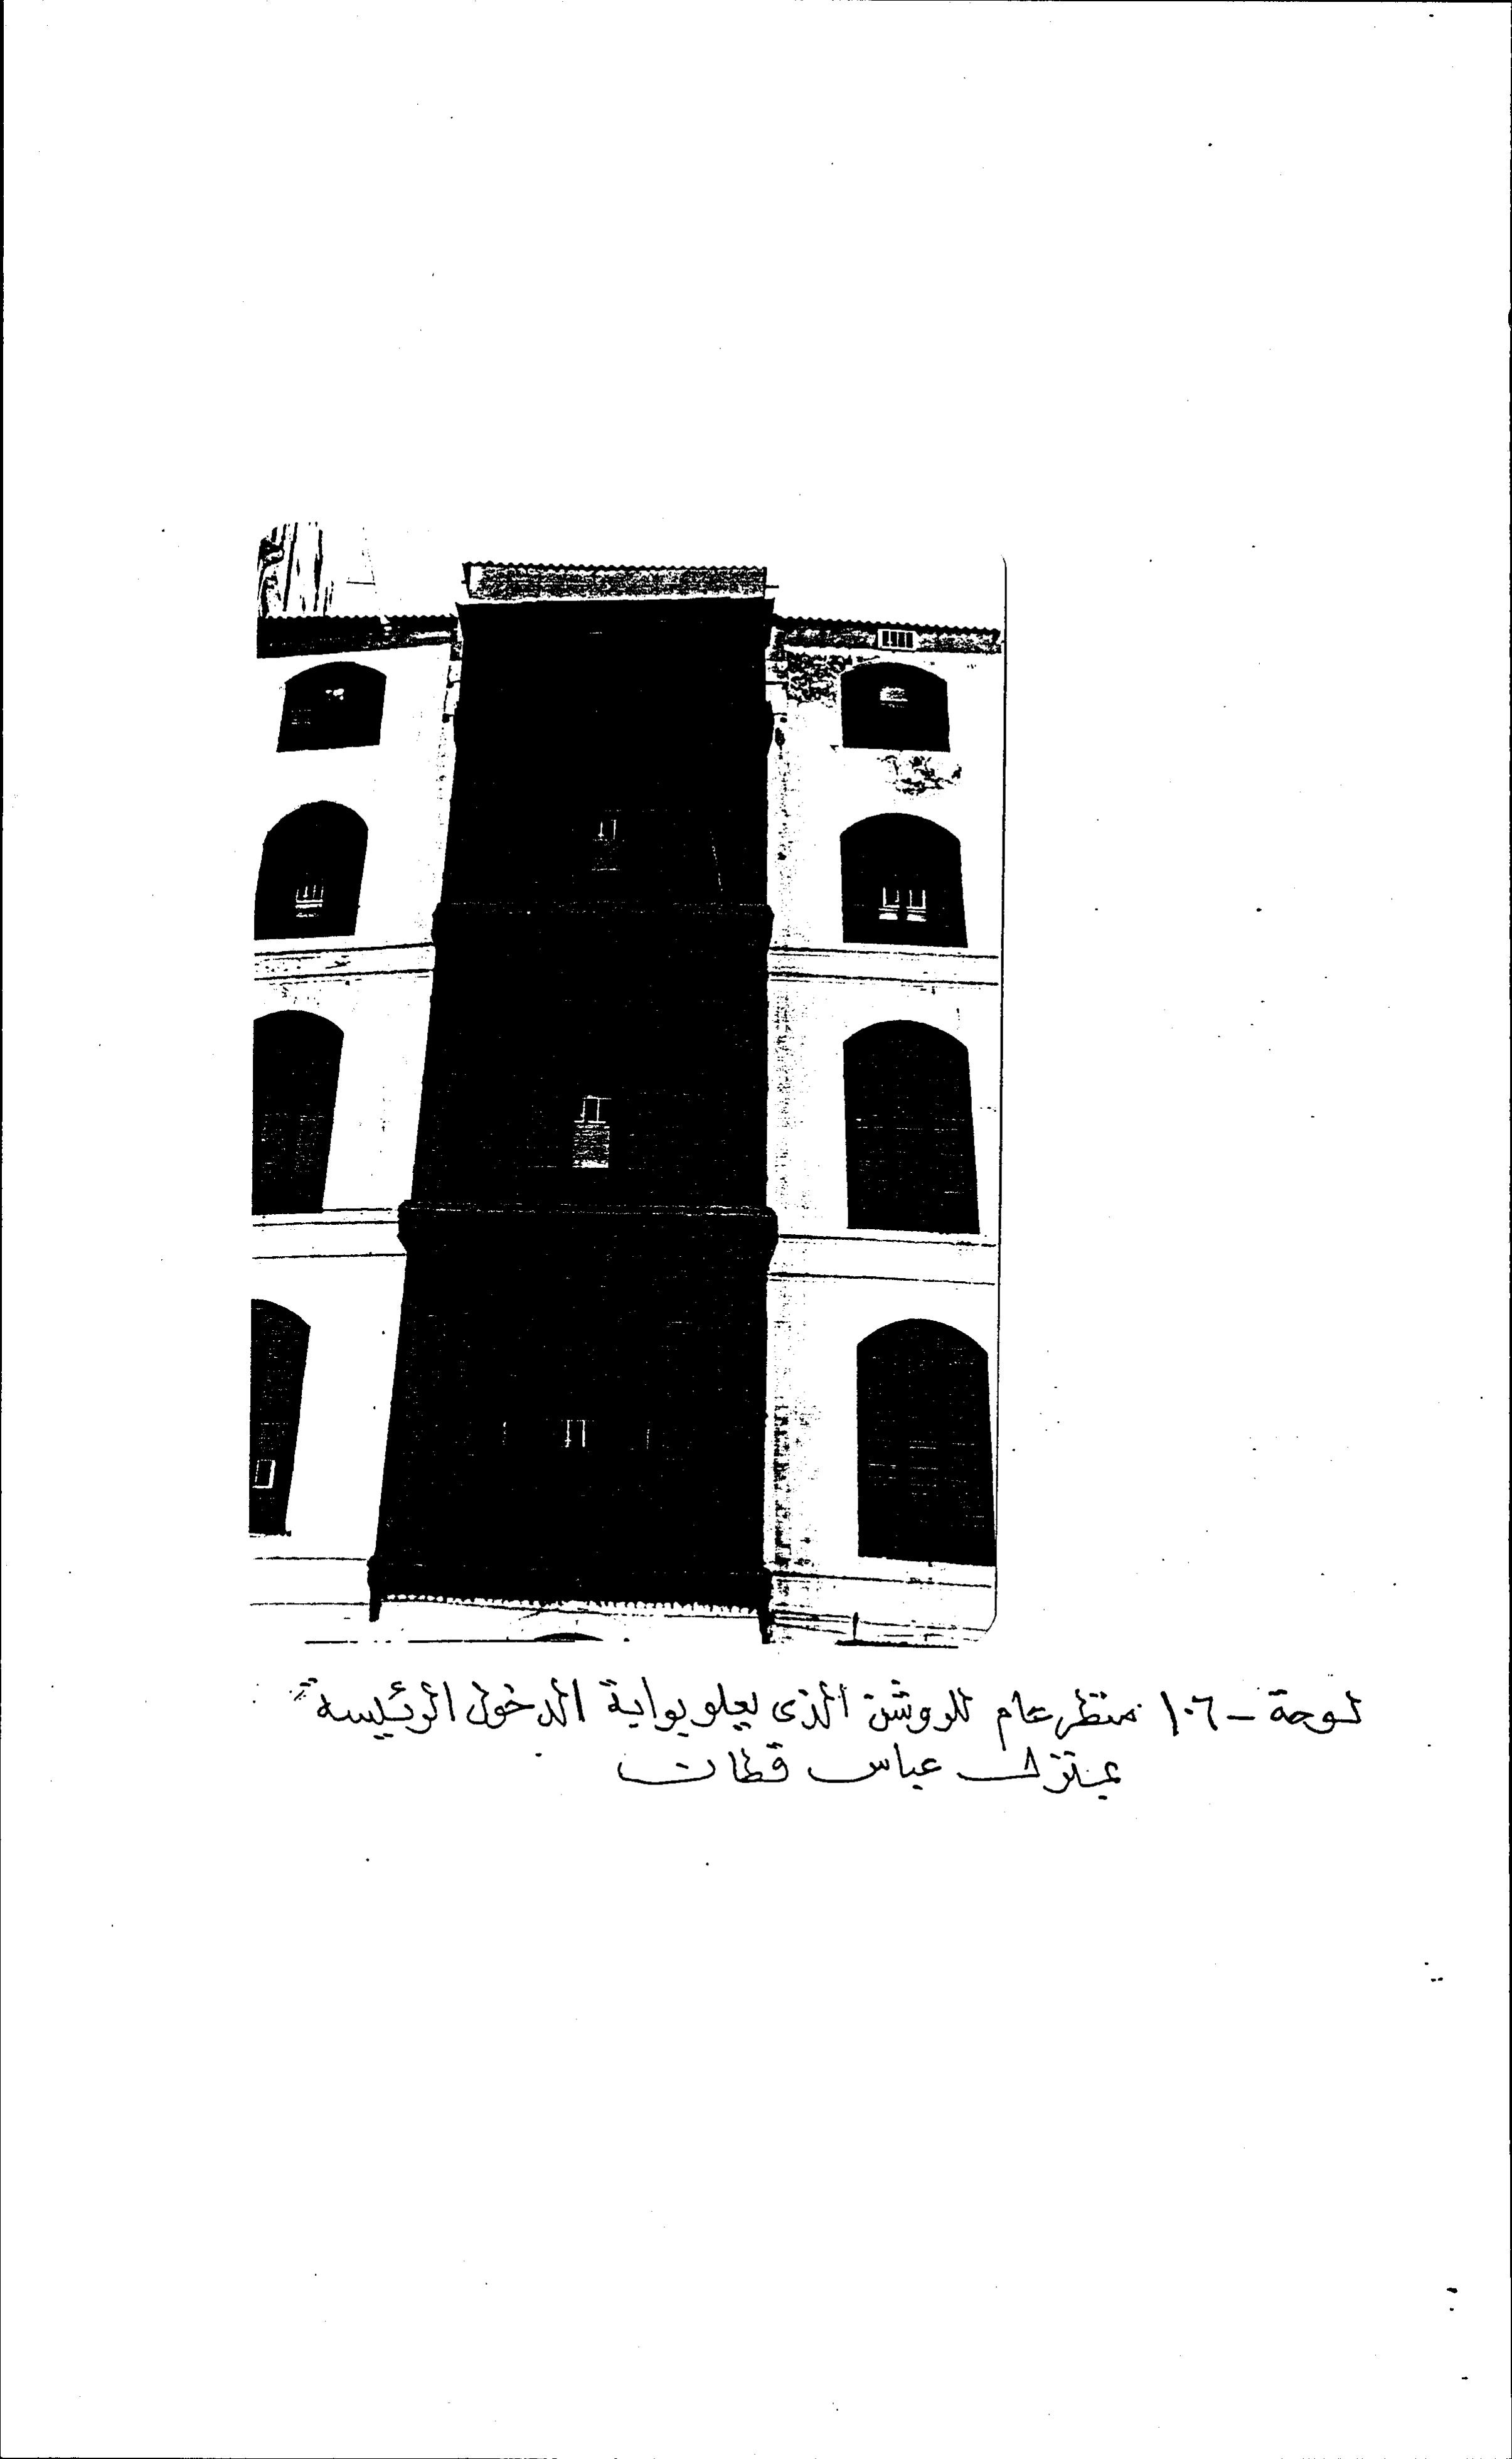 لوحة - ١٠٦ منظر عام للروشن الذى يعلو بوابة الدخول الرئيسة
بمنزل عباس قطان